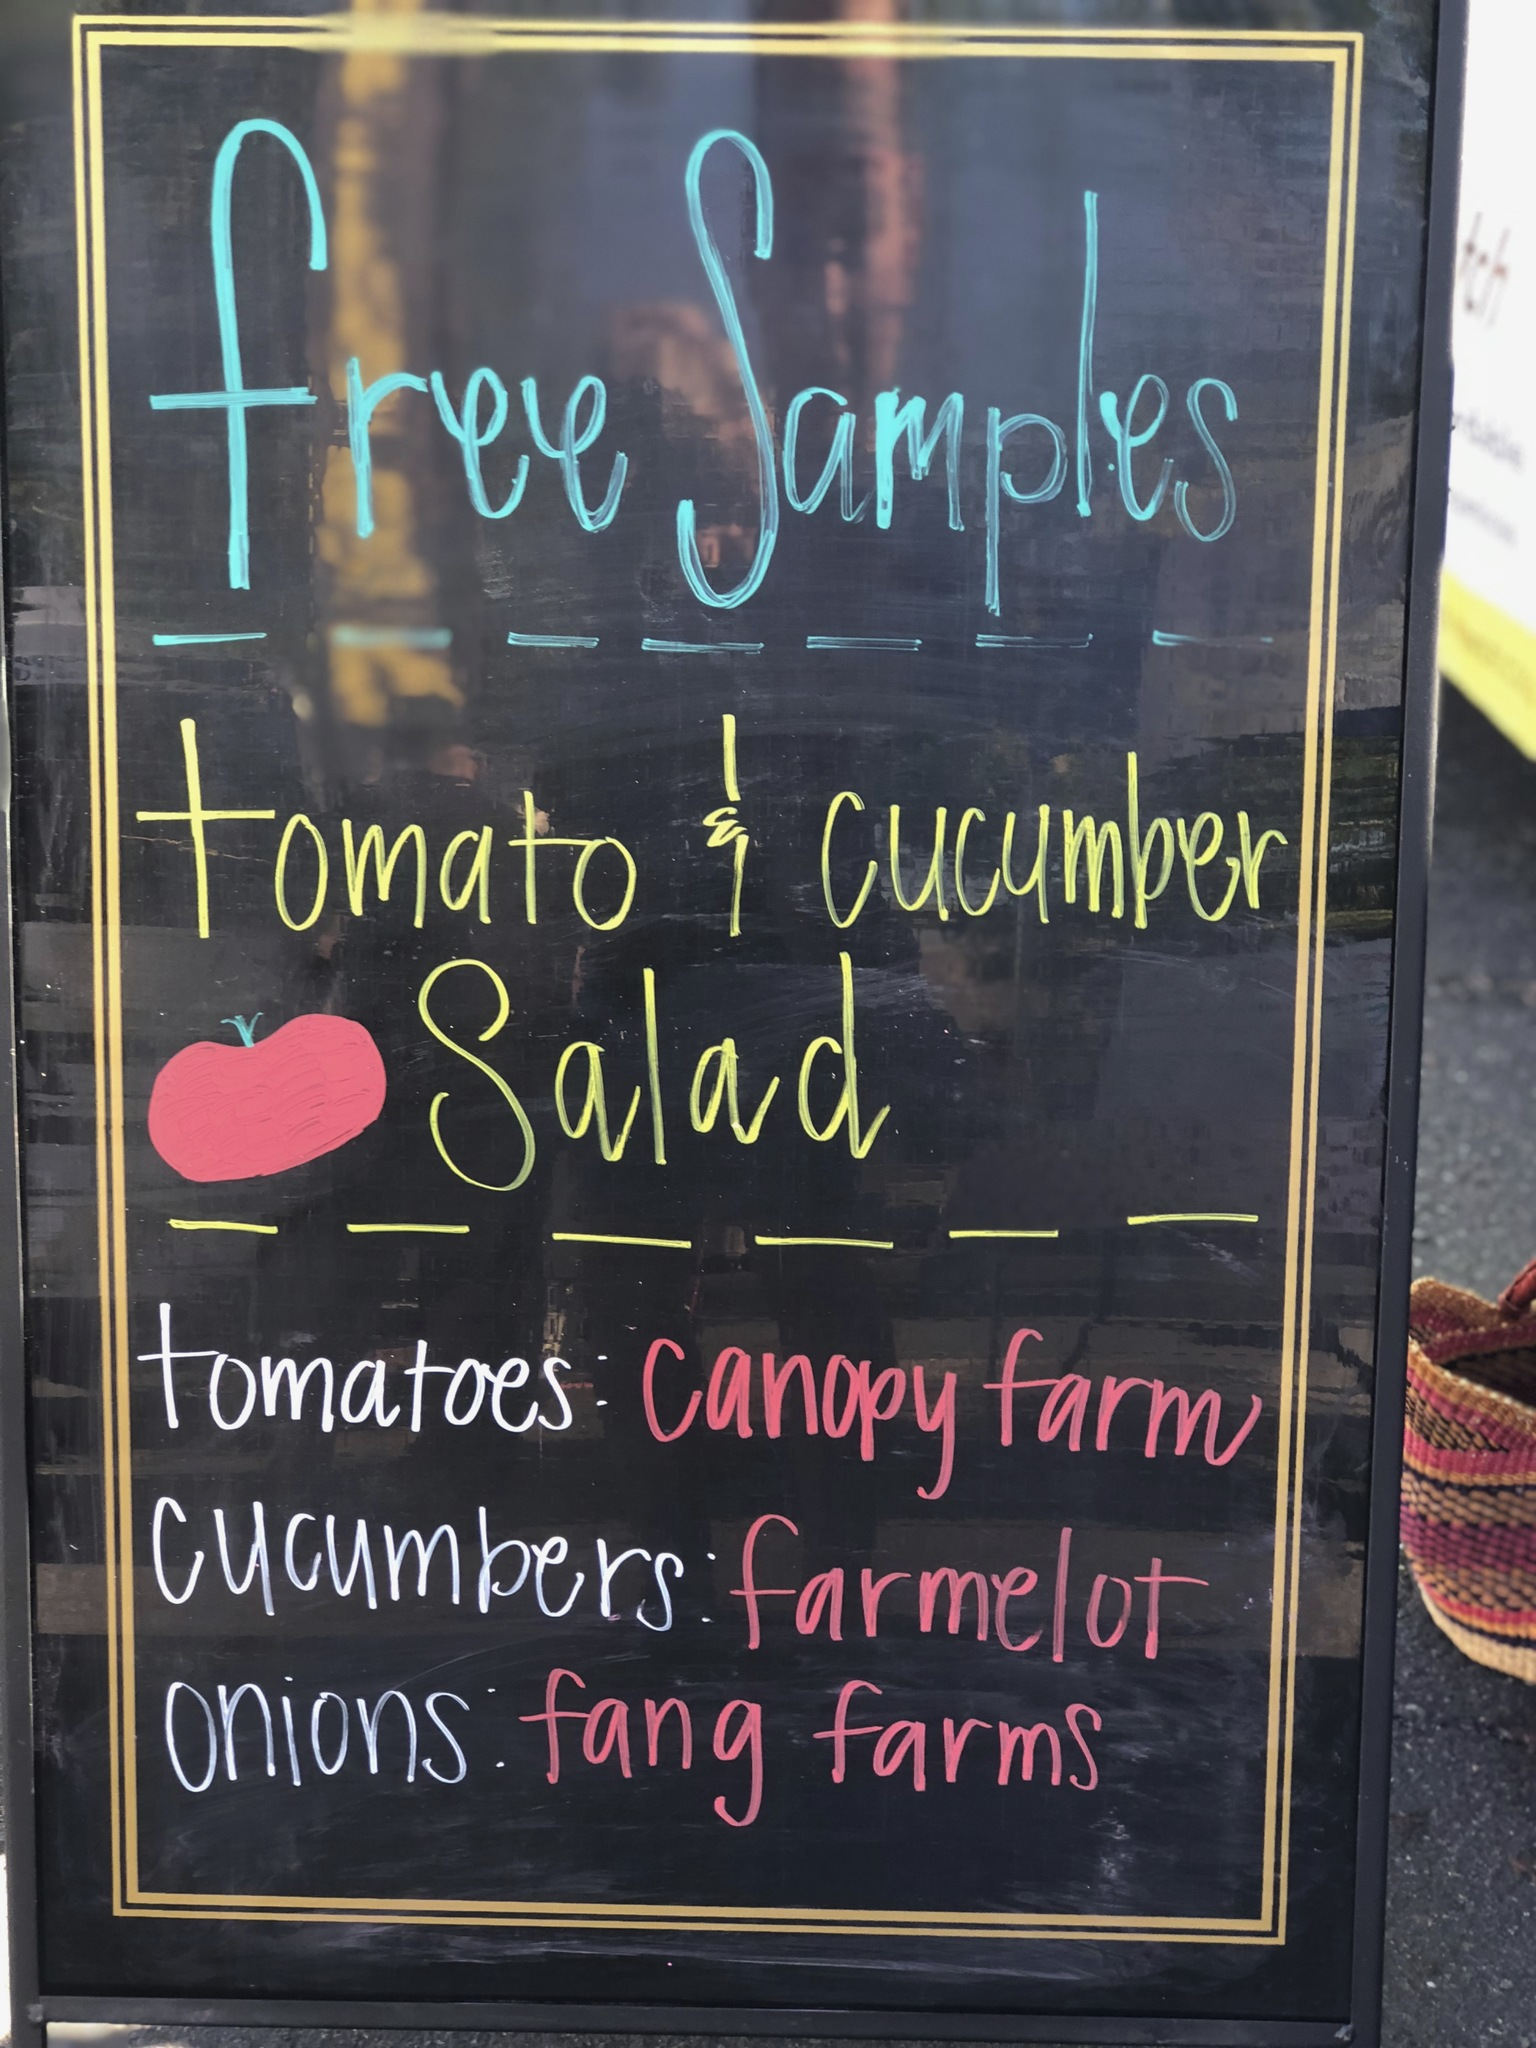 free Samples
tomato & cucumber
Salad
tomatoes: canopy farm
cucumbers: farmelot
onions: fang farms
tch